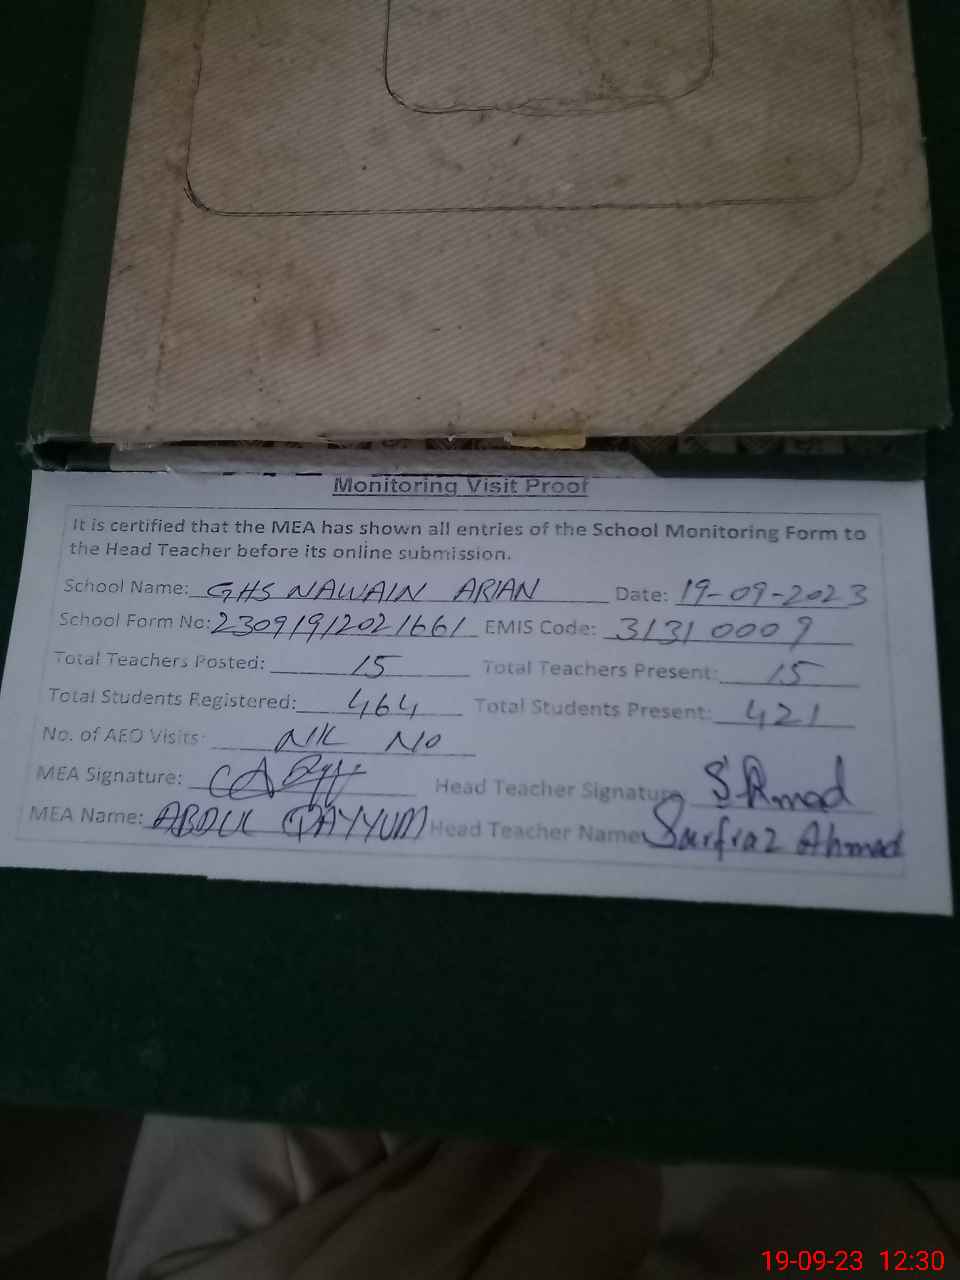 Monitoring Visit Proof
It is certified that the MEA has shown all entries of the School Monitoring Form to
the Head Teacher before its online submission.
School Name: GHS NAWAIN ARIAN Date: 19-09-2023
School Form No: 23091912021661 EMIS Code: 31310009
Total Teachers Posted: 15 Total Teachers Present: 15
Total Students Registered: 464 Total Students Present: 421
No. of AEO Visits: NIL NO
MEA Signature: Head Teacher Signature SAhmad
MEA Name: ABDUL QAYYUM Head Teacher Name Sarfraz Ahmed
19-09-23 12:30